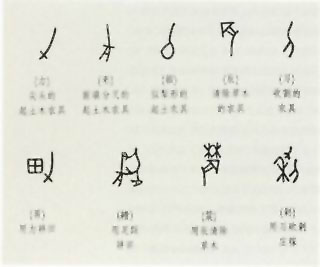 (力)
尖头的
起土木农具
(耒)
分叉的
起土木农具
形的
起土木农具
(辰)
清除草木
的农具
收割的
农具
用力耕田
(耤)
用足踏
耕田
用辰清除
草木
收割
庄稼